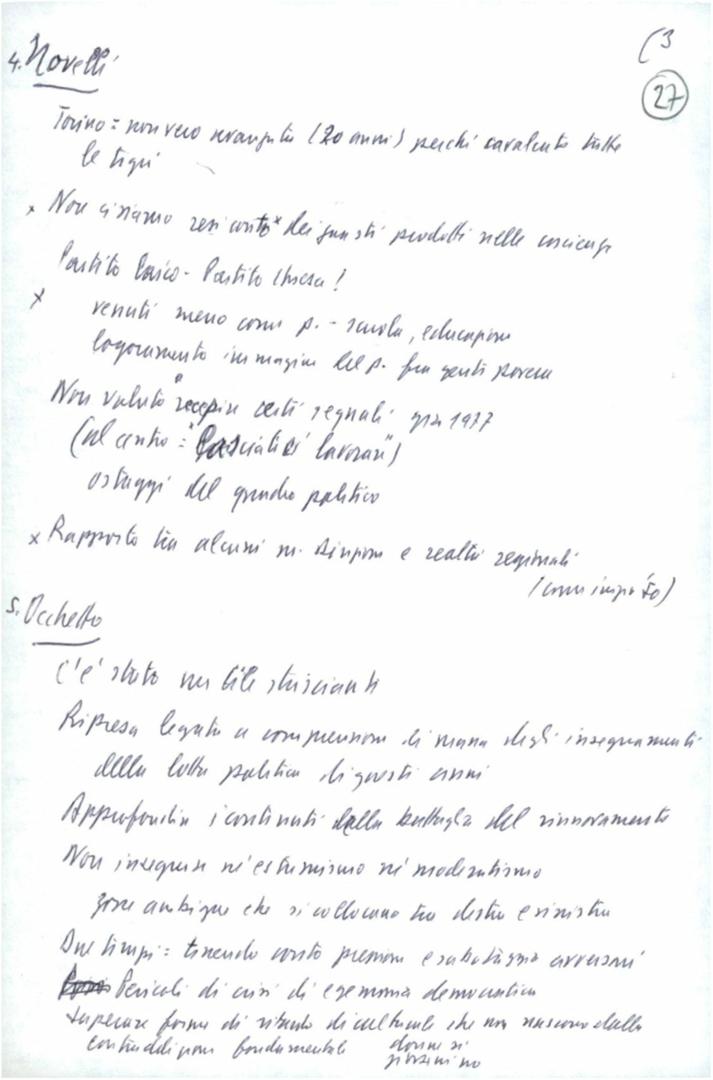 (3
27
4. Novelli
Torino = non vero avanzata (20 anni) perché cavalcato tutte
le tigri
x Non ci siamo resi conto x dei guasti prodotti nelle coscienze
Partito laico - Partito chiesa!
x venuti meno come p. - scuola, educazione
logoramento immagine del p. fra gente povera
Non voluto recepire certi segnali già 1977
(al centro = "Lasciateci lavorare")
ostaggi del quadro politico
x Rapporto tra alcuni m. Direzione e realtà regionali
(
5. Occhetto
C'è stato un
Ripresa legata a comprensione di massa degli insegnamenti
della lotta politica di questi anni
Approfondire i contenuti della battaglia del rinnovamento
Non inseguire né estremismo né moderatismo
zone ambigue che si collocano tra destra e sinistra
Due tempi = tenendo conto pressioni e sabotaggio avversari
Pericoli di crisi di egemonia democratica
Superare forme di che non nascono dalla
contraddizione fondamentale donne si
no